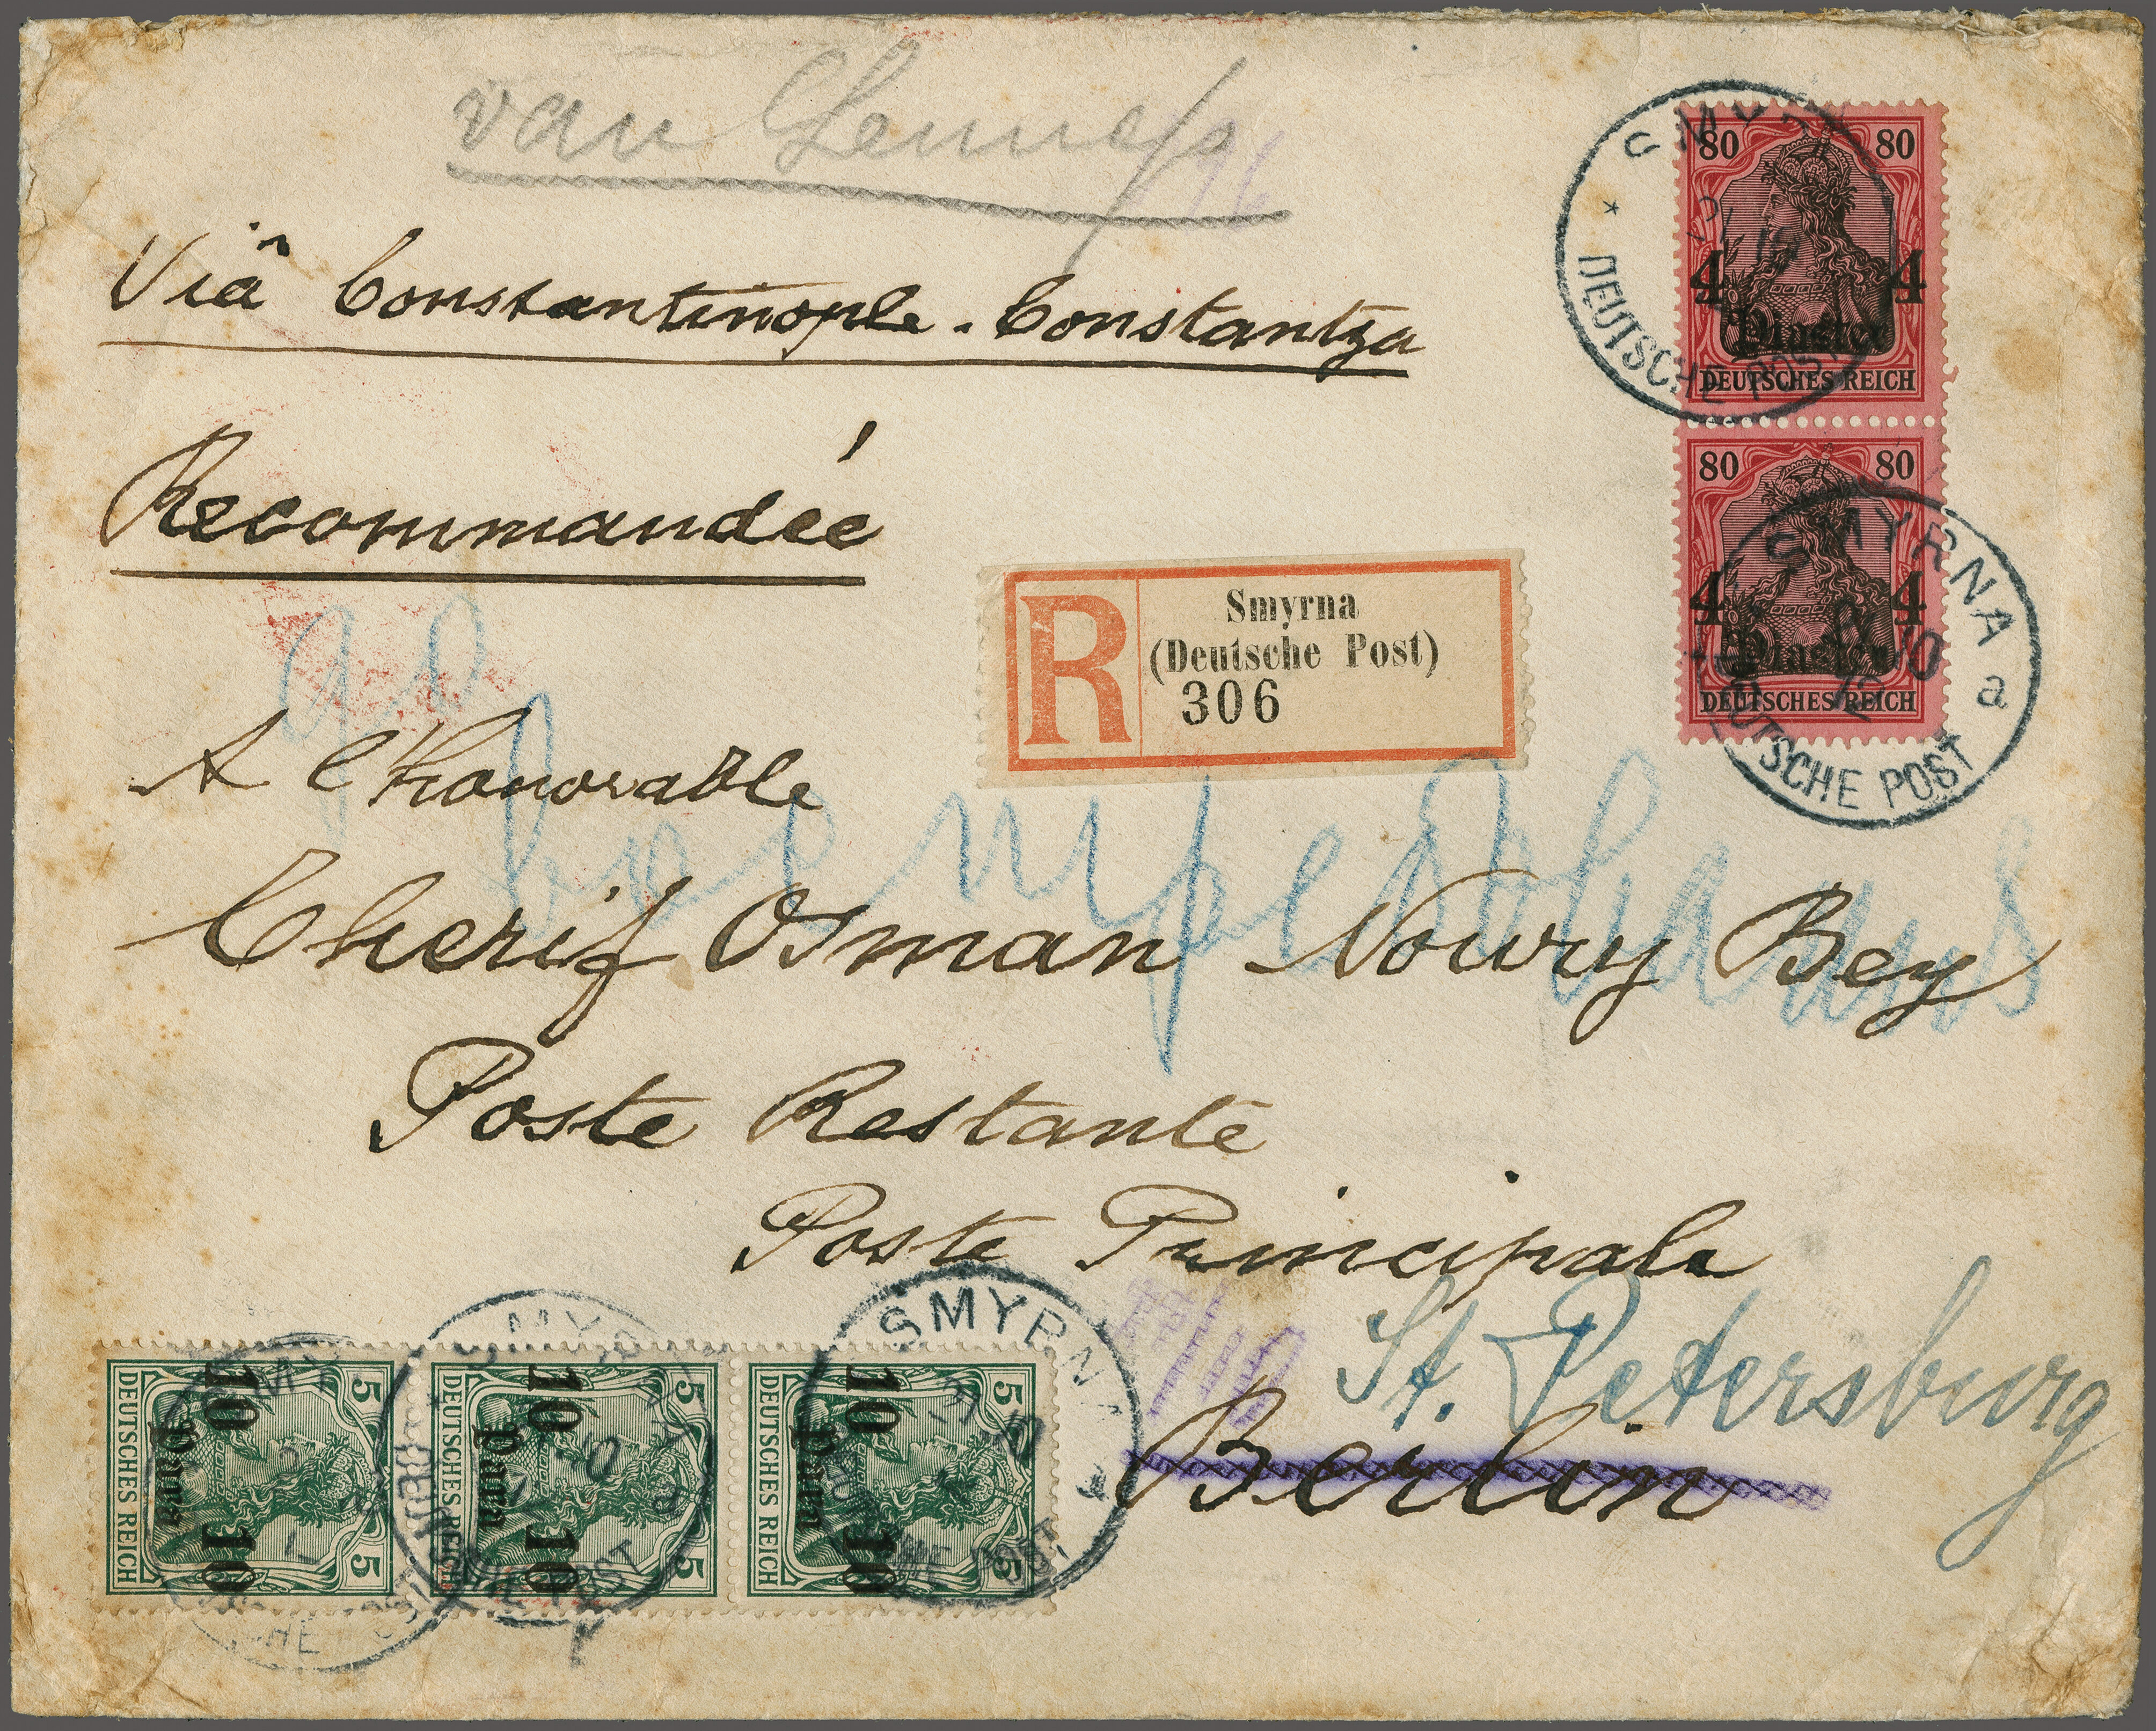 van Lennep
Viâ Constantinople - Constantza
Recommandée
R
Smyrna
(Deutsche Post)
306
80 80
4 4
Piaster
DEUTSCHES REICH
DEUTSCHE POST
80 80
4 4
Piaster
DEUTSCHES REICH
SMYRNA
a
DEUTSCHE POST
A l'honorable
Cherif Osman Noury Bey
Poste Restante
Poste Principale
St. Petersburg
Berlin
5 5
10 10
para
DEUTSCHES REICH
5 5
10 10
para
DEUTSCHES REICH
5 5
10 10
para
DEUTSCHES REICH
SMYRNA